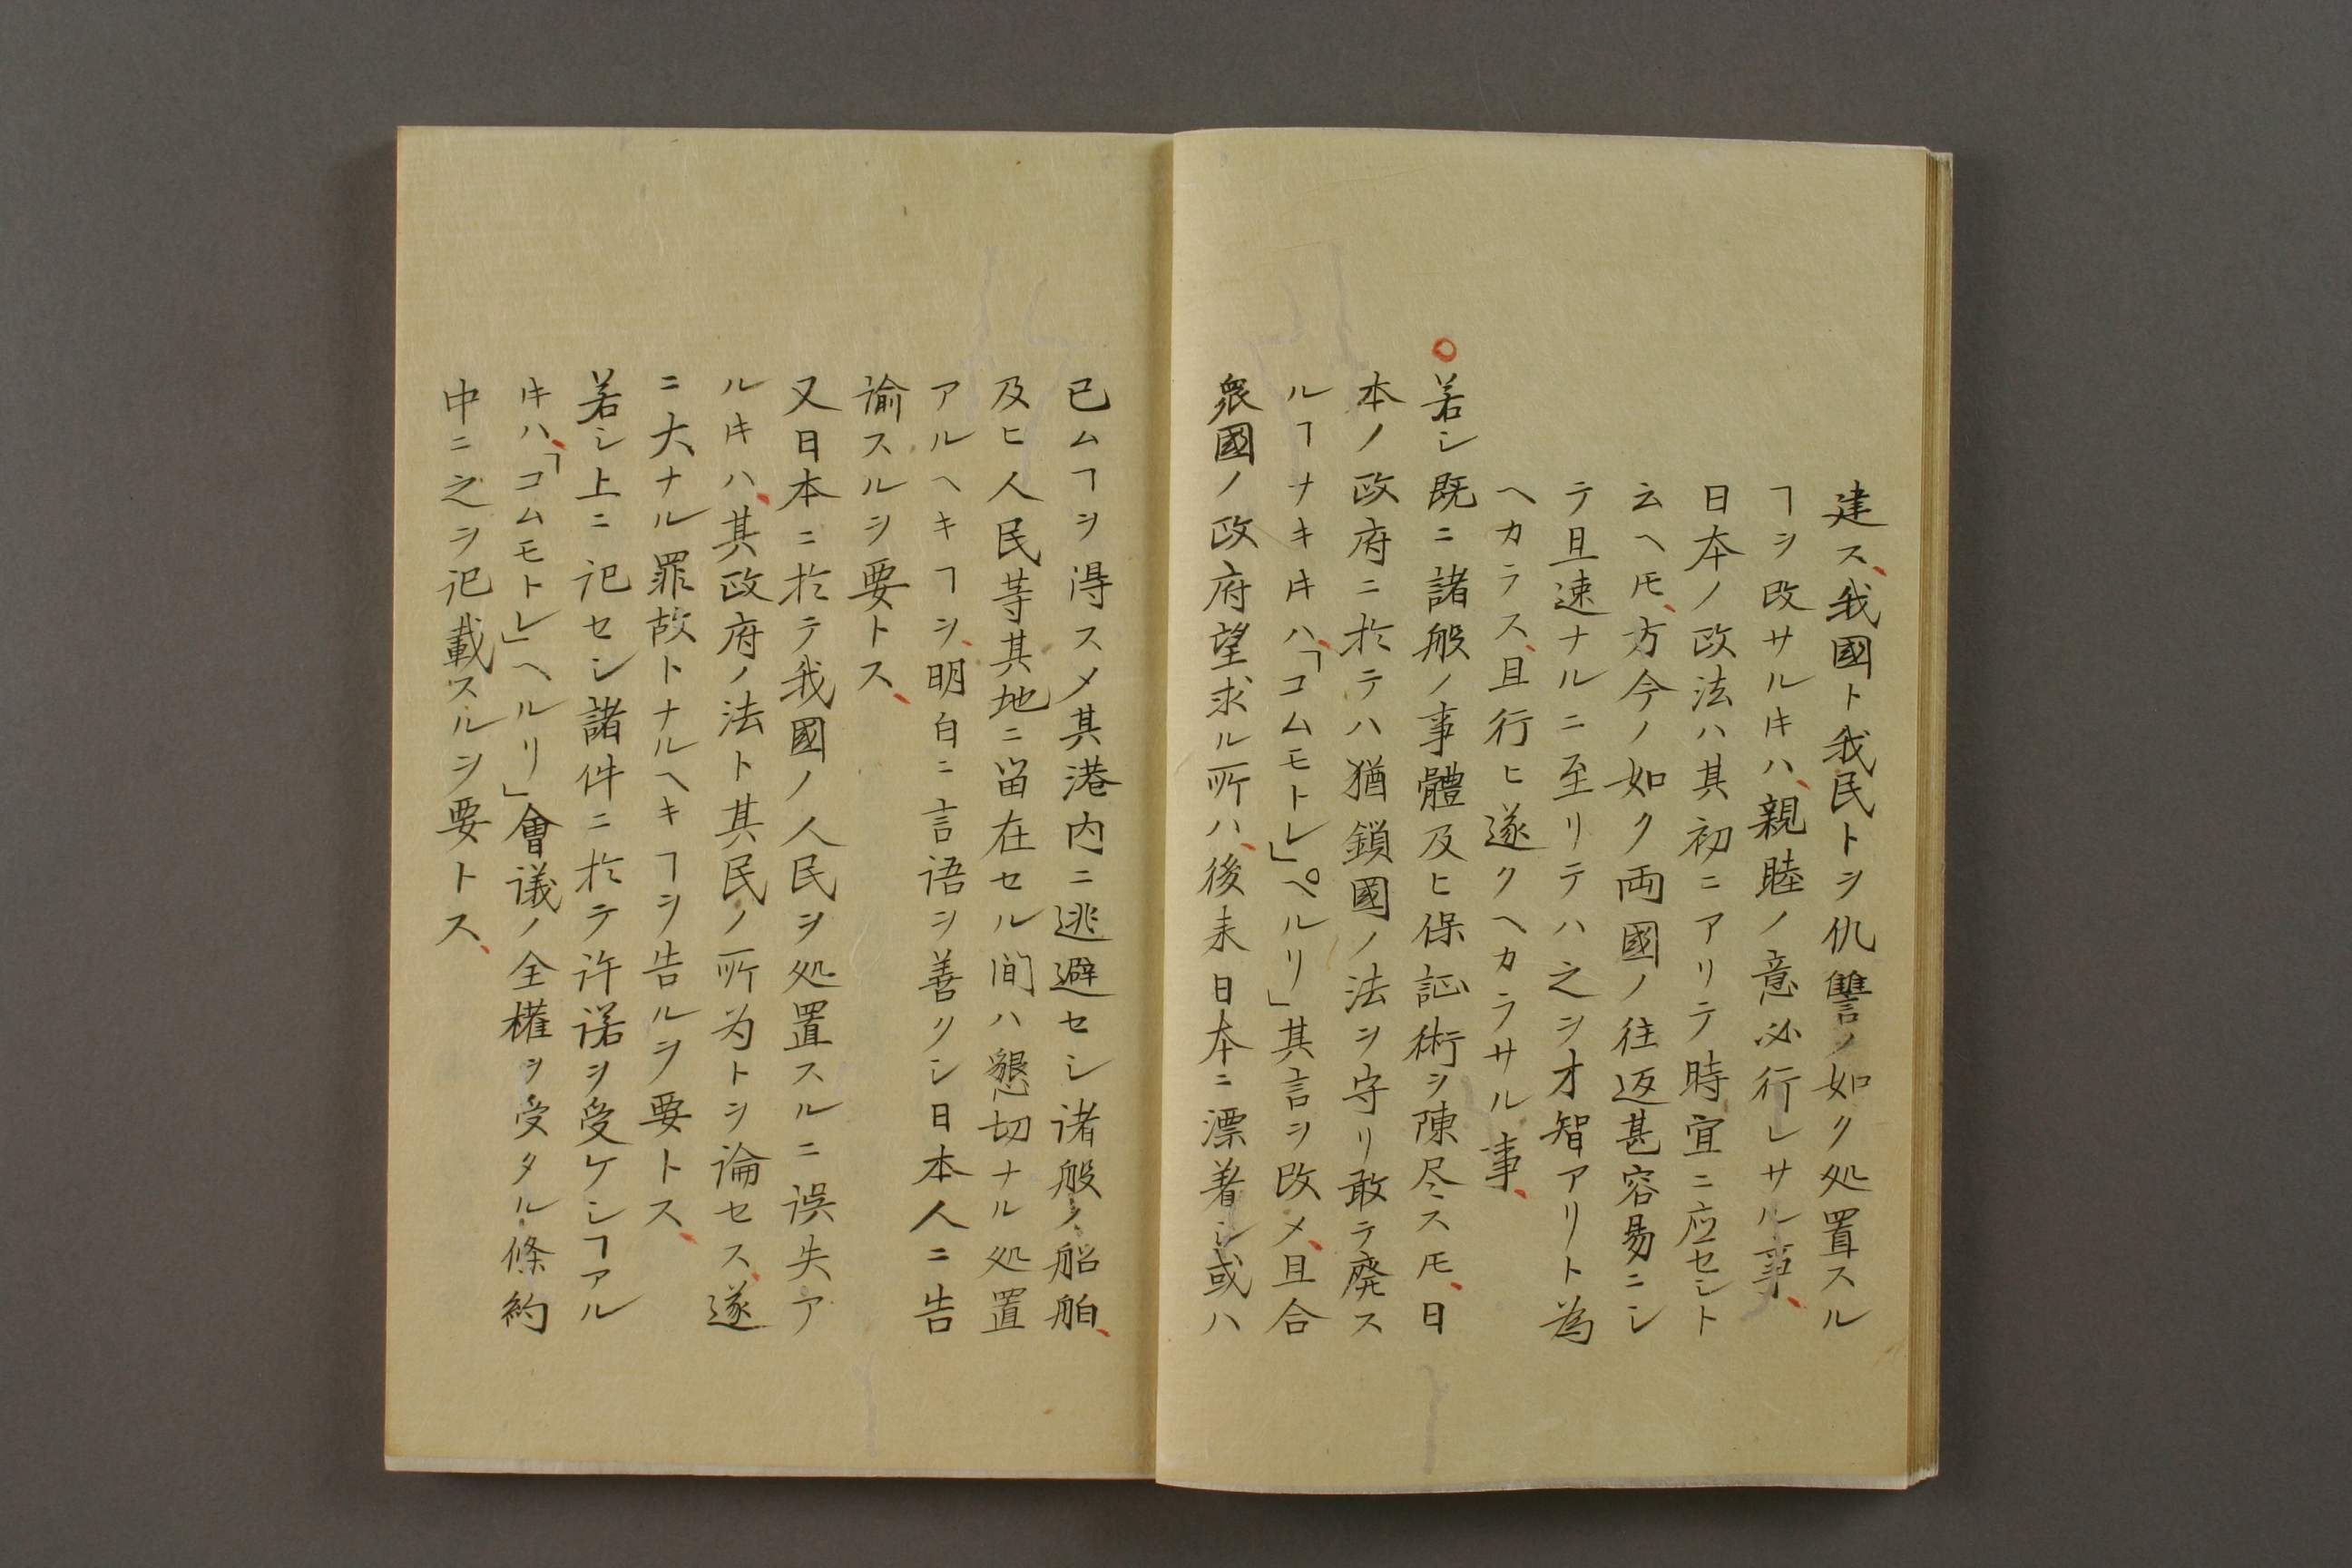 建ス、我國ト我民トヲ仇讐ノ如ク処置スル
ヿヲ改サル𪜈ハ、親睦ノ意必行レサル事、
日本ノ政法ハ其初ニアリテ時宜ニ応セシト
云ヘ𪜈、方今ノ如ク両國ノ往返甚容易ニシ
テ且速ナルニ至リテハ之ヲ才智アリト為
ヘカラス、且行ヒ遂クヘカラサル事、
○若シ既ニ諸般ノ事體及ヒ保証術ヲ陳尽ス𪜈、日
本ノ政府ニ於テハ猶鎖國ノ法ヲ守リ敢テ廃ス
ルヿナキ𪜈ハ、「コムモトレ」。ペルリ」其言ヲ改メ、且合
衆國ノ政府望求ル所ハ、後来日本ニ漂着シ或ハ
已ムヿヲ得スメ其港内ニ逃避セシ諸般ノ船舶、
及ヒ人民等其地ニ留在セル間ハ懇切ナル処置
アルヘキヿヲ、明白ニ言語ヲ善クシ日本人ニ告
諭スルヲ要トス、
又日本ニ於テ我國ノ人民ヲ処置スルニ誤失ア
ル𪜈ハ、其政府ノ法ト其民ノ所为トヲ論セス、遂
ニ大ナル罪故トナルヘキヿヲ告ルヲ要トス、
若シ上ニ記セシ諸件ニ於テ許諾ヲ受ケシヿアル
𪜈ハ、「コムモトレ」ヘルリ」會議ノ全権ヲ受タル條約
中ニ之ヲ記載スルヲ要トス、